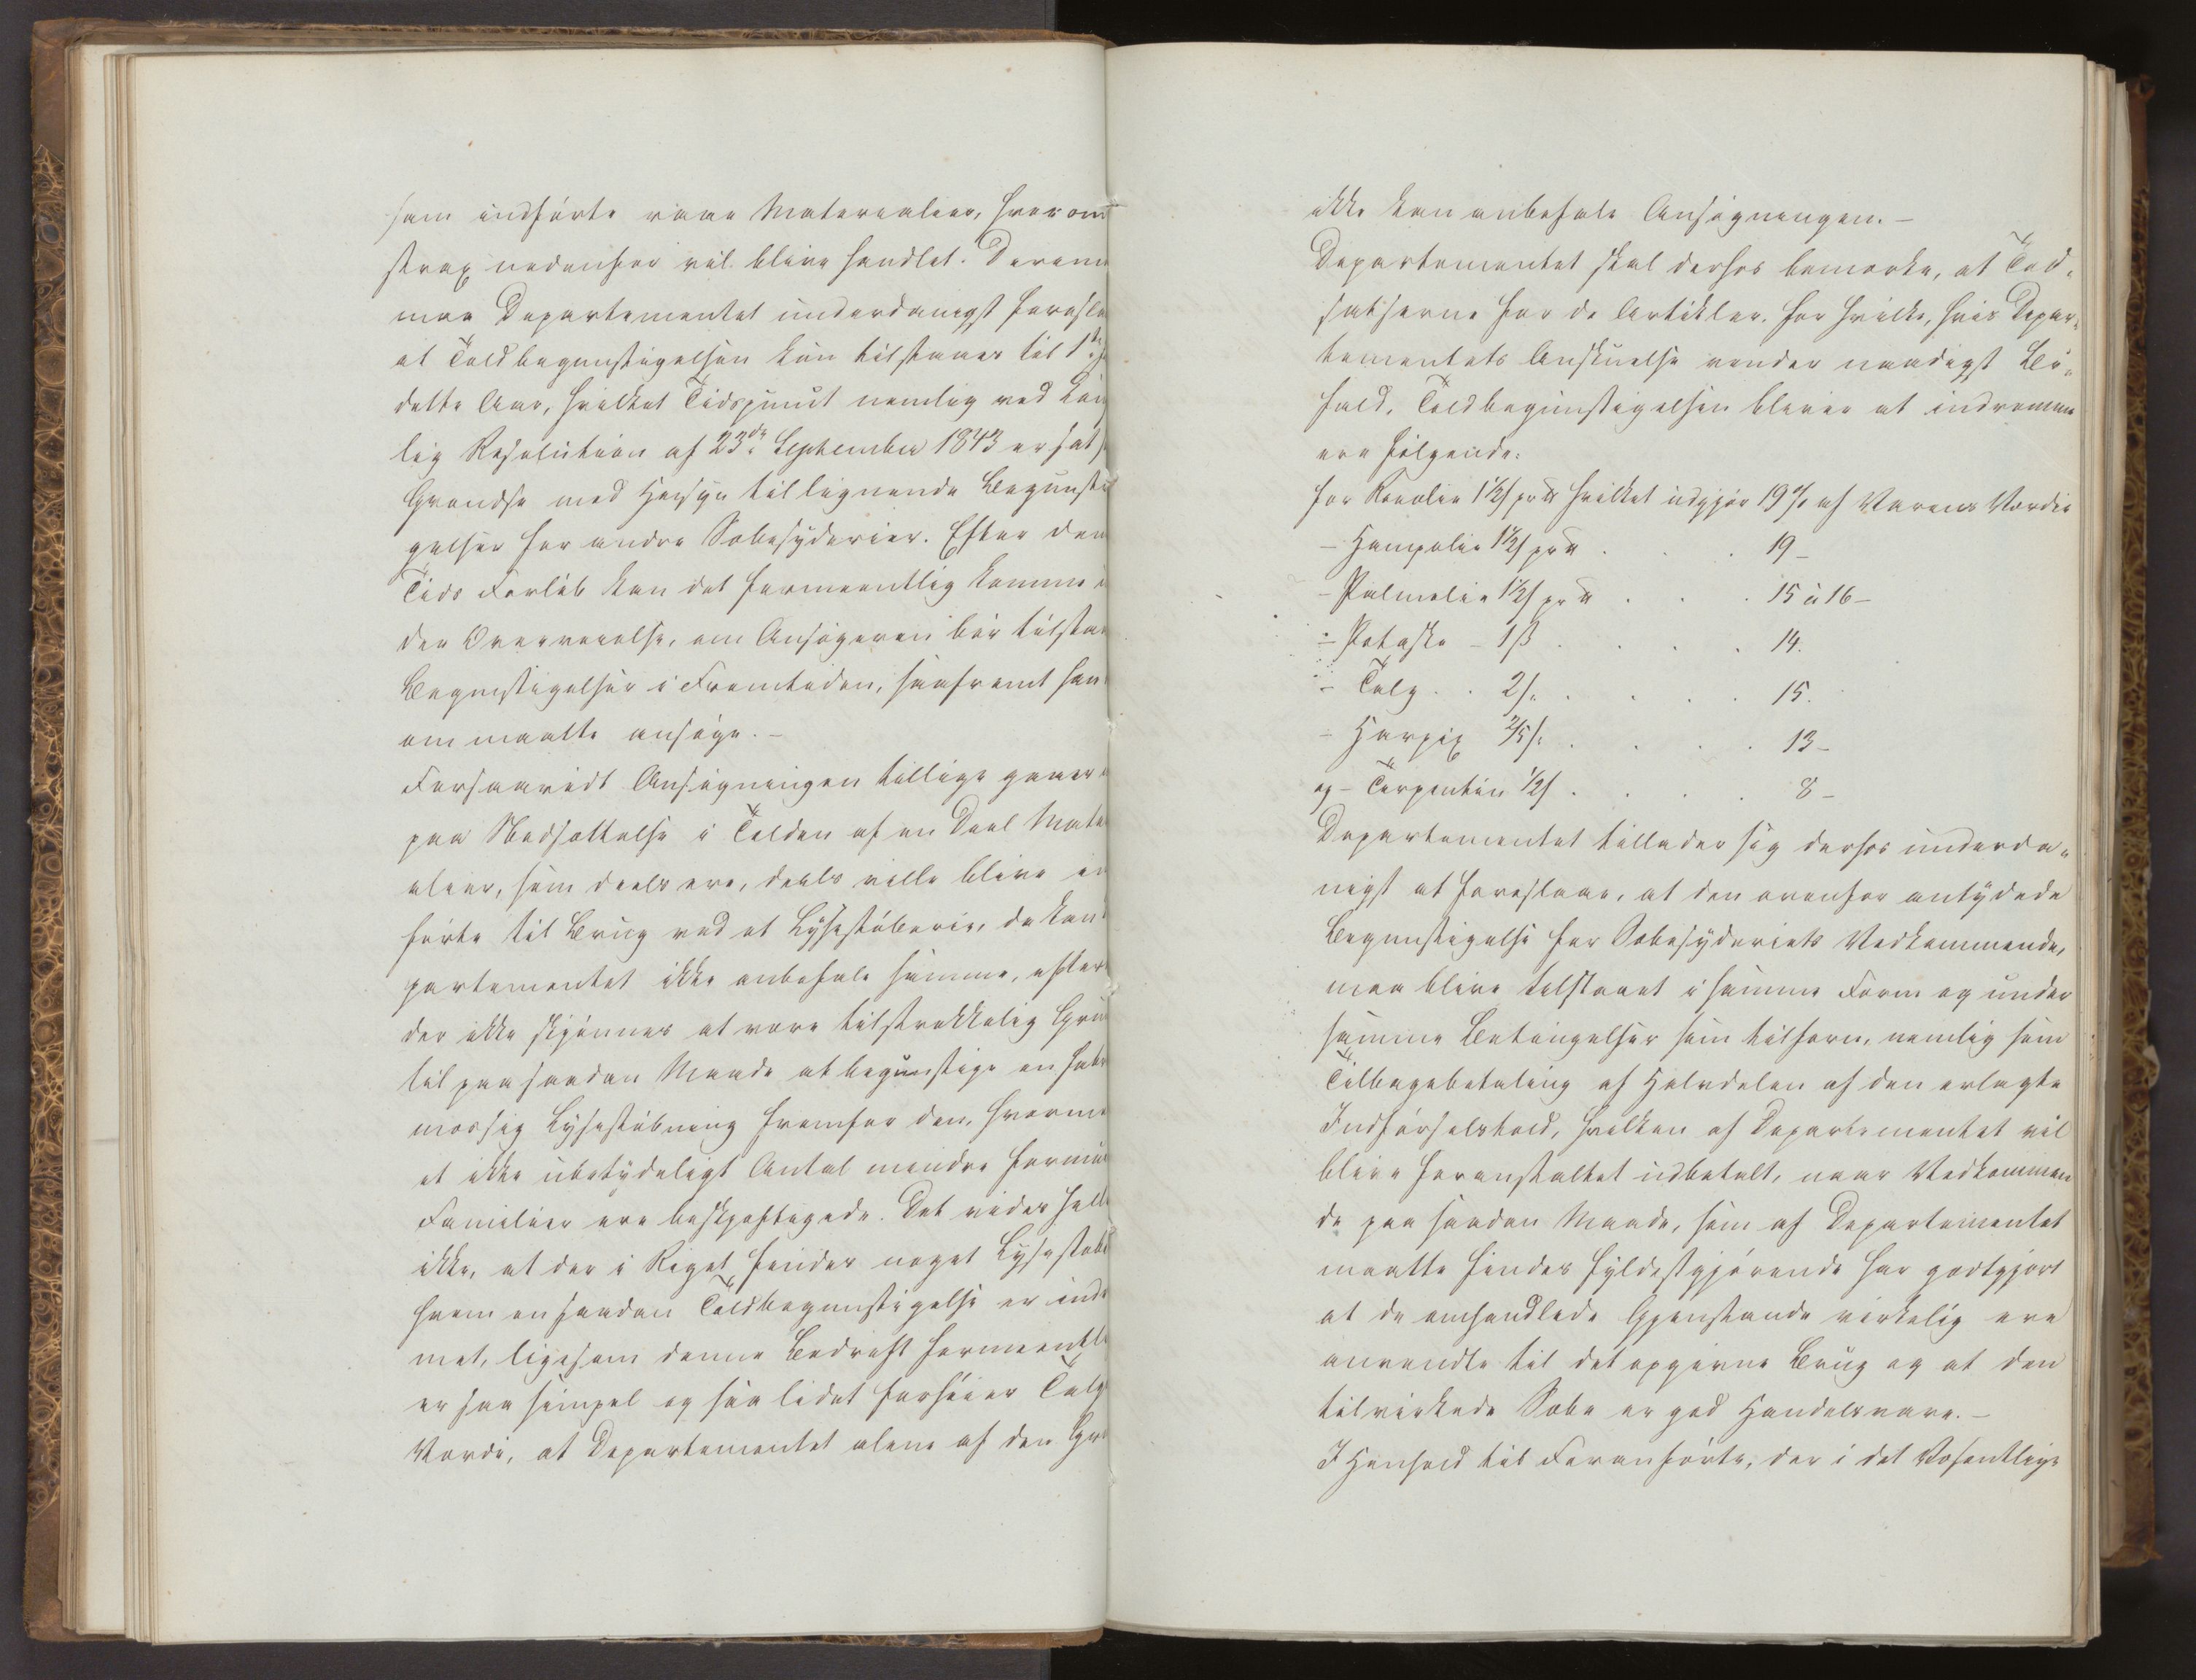 som indførte raae Materialier, hvorom
strax nedenfor vil blive handlet. Derom
maa Departementet underdanigst foresla
at Toldbegunstigelsen kun tilstaaes til 1ste
dette Aar, hvilket Tidspunct nemlig ved Kon
lig Resolution af 23de September 1843 er sat
Grændse med Hensyn til lignende Begunsti
gelser for andre Sæbesyderier. Efter den
Tids Forløb kan det formeentlig komme i
den Overveielse, om Ansøgeren bør tilstaa
Begunstigelser i Fremtiden, saafremt han
om maatte ansøge. –
Forsaavidt Ansøgningen tillige gaaer
paa Nedsættelse i Tolden af en Deel Mate
alier, som deels ere, deels ville blive in
førte til Brug ved et Lysestøberie, da kan
partementet ikke anbefale samme, efter
der ikke skjønnes at være tilstrækkelig Gru
til paa saadan Maade at begunstige en fabr
mæssig Lysestøbning fremfor den, hvorme
et ikke ubetydeligt Antal mindre formu
Familier ere beskjæftigede. Det vides hell
ikke, at der i Riget findes noget Lysestøbe
hvem en saadan Toldbegunstigelse er ind
met, ligesom denne Bedrift formeentl
er saa simpel og saa lidet forhøier Talg
Værdi, at Departementet alene af den Gr
ikke kan anbefale Ansøgningen. –
Departementet skal derhos bemærke, at Told-
satserne for de Artikler, for hvilke, hvis Depar-
tementets Anskuelse vinder naadigst Bi-
fald, Toldbegunstigelsen bliver at indrømme
ere følgende:
for Roeolie 1 1/2 s pr ℔ hvilket udgjør 19 % af Varens Værdie
– Hampolie 1 1/2 s pr ℔ . . . 19 –
– Palmolie 1 1/2 s pr ℔ . . . 15 à 16 –
– Potaske – 1 ß . . . . 14.
– Talg . . 2 s. . . . . 15.
– Harpix 2/5 s. . . . . 13 –
og – Terpentin 1/2 s . . . . 8 –
Departementet tillader sig derhos underda-
nigst at foreslaae, at den ovenfor antydede
Begunstigelse for Sæbesyderiets Vedkommende,
maa blive tilstaaet i samme Form og under
samme Betingelser som tilforn, nemlig som
Tilbagebetaling af Halvdelen af den erlagte
Indførselstold, hvilken af Departementet vil
blive foranstaltet udbetalt, naar Vedkommen
de paa saadan Maade, som af Departementet
maatte findes fyldestgjørende har godtgjort
at de omhandlede Gjenstande virkelig ere
anvendte til det opgivne Brug og at den
tilvirkede Sæbe er god Handelsvare. –
I Henhold til Foranførte, der i det Væsentlige